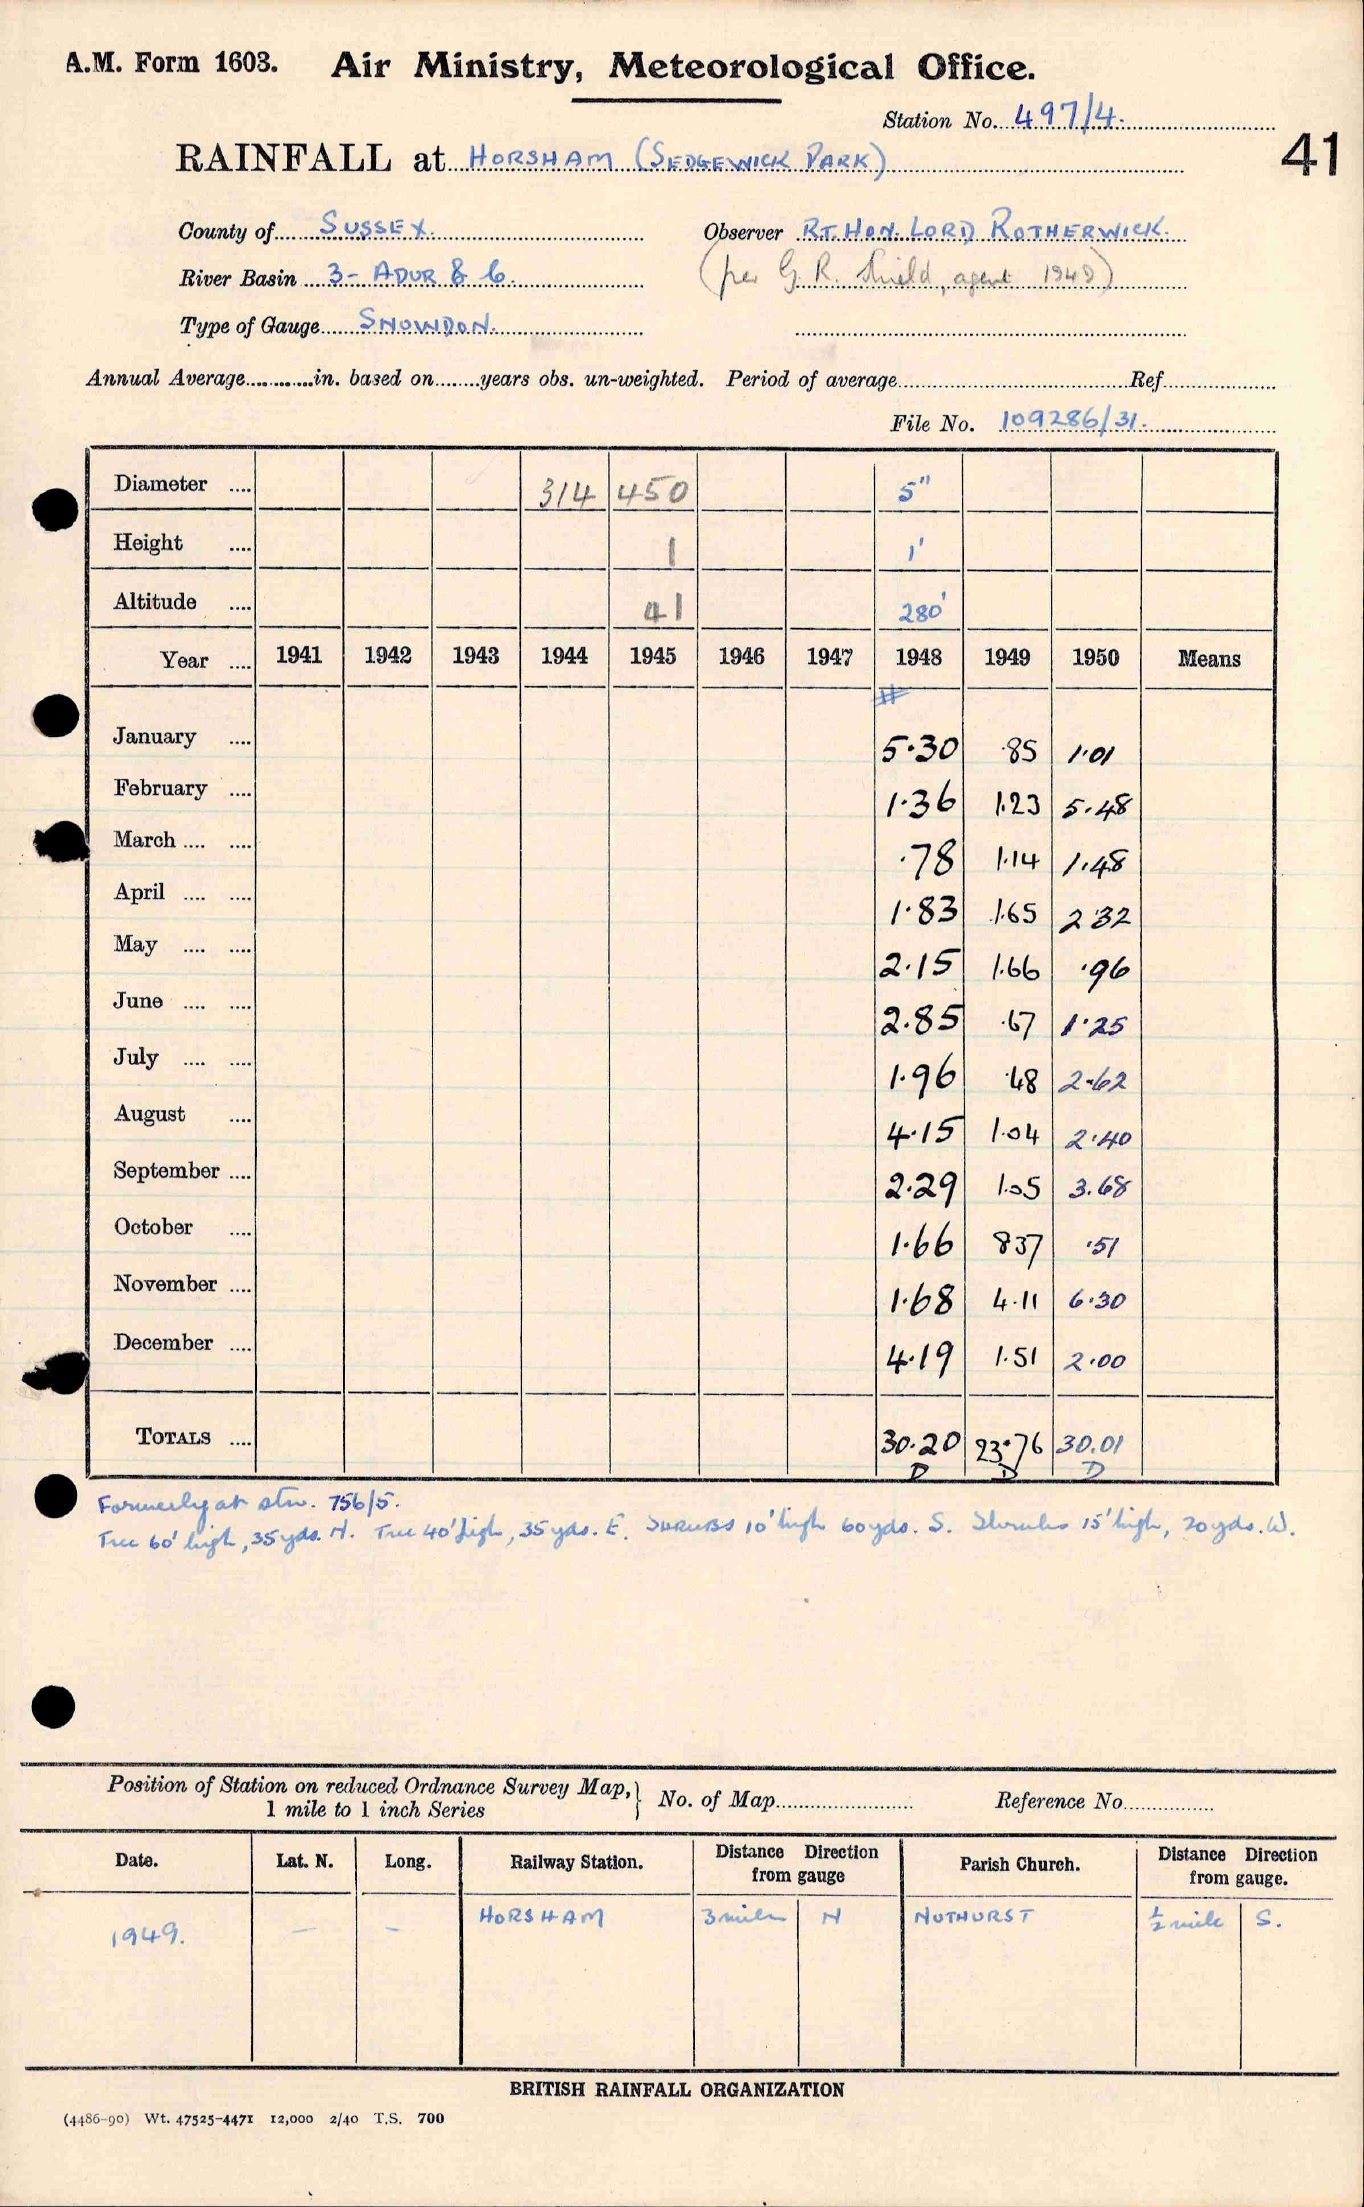 A.M. Form 1603. Air Ministry, Meteorological Office.
Station No. 497/4.
41
RAINFALL at HORSHAM (SEDGEWICK PARK)
County of SUSSEX. Observer RT. HON. LORD ROTHERWICK.
River Basin 3- ADUR & C. (per G. R. Shield, agent 1949)
Type of Gauge SNOWDON.
Annual Average............in. based on........years obs. un-weighted. Period of average........Ref........
File No. 109286/31.
Diameter .... 314 450 5"
Height .... 1 1'
Altitude .... 41 280'
Year .... 1941 1942 1943 1944 1945 1946 1947 1948 1949 1950 Means
#
January .... 5.30 .85 1.01
February .... 1.36 1.23 5.48
March .... .... .78 1.14 1.48
April .... .... 1.83 1.65 2.32
May .... .... 2.15 1.66 .96
June .... .... 2.85 .67 1.25
July .... .... 1.96 .48 2.62
August .... 4.15 1.04 2.40
September .... 2.29 1.05 3.68
October .... 1.66 837 .51
November .... 1.68 4.11 6.30
December .... 4.19 1.51 2.00
TOTALS .... 30.20 23.76 30.01
D D D
Formerly at stn. 756/5.
Tree 60' high, 35 yds. N. Tree 40' high, 35 yds. E. SHRUBS 10' high 60 yds. S. Shrubs 15' high, 20 yds. W.
Position of Station on reduced Ordnance Survey Map, } No. of Map........ Reference No........
1 mile to 1 inch Series
Date. Lat. N. Long. Railway Station. Distance Direction from gauge Parish Church. Distance Direction from gauge.
1949. – – HORSHAM 3 miles N NUTHURST ½ mile S.
BRITISH RAINFALL ORGANIZATION
(4486-90) Wt. 47525-4471 12,000 2/40 T.S. 700